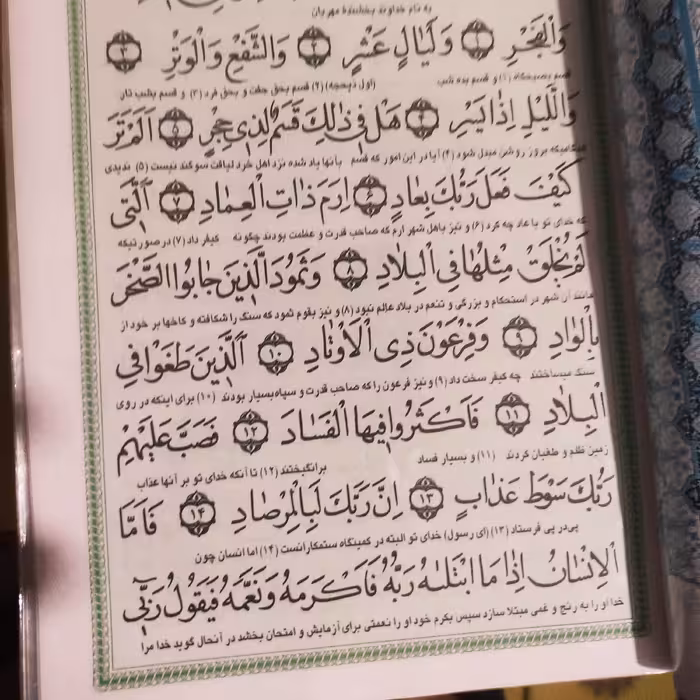 به نام خداوند بخشندهٔ مهربان
وَالْفَجْرِ ﴿۱﴾ وَلَيَالٍ عَشْرٍ ﴿۲﴾ وَالشَّفْعِ وَالْوَتْرِ ﴿۳﴾
قسم بصبحگاه (۱) و قسم بده شب (اول ذیحجه) (۲) قسم بحق جفت و بحق فرد (۳) و قسم بشب تار
وَالَّيْلِ اِذَا يَسْرِ ﴿۴﴾ هَلْ فِى ذٰلِكَ قَسَمٌ لِذِى حِجْرٍ ﴿۵﴾ اَلَمْ تَرَ
هنگامیکه بروز روشن مبدل شود (۴) آیا در این امور که قسم بآنها یاد شده نزد اهل خرد لیاقت سوگند نیست (۵) ندیدی
كَيْفَ فَعَلَ رَبُّكَ بِعَادٍ ﴿۶﴾ اِرَمَ ذَاتِ الْعِمَادِ ﴿۷﴾ اَلَّتِى
که خدای تو با عاد چه کرد (۶) و نیز باهل شهر ارم که صاحب قدرت و عظمت بودند چگونه کیفر داد (۷) در صورتیکه
لَمْ يُخْلَقْ مِثْلُهَا فِى الْبِلَادِ ﴿۸﴾ وَثَمُودَ الَّذِينَ جَابُوا الصَّخْرَ
مانند آن شهر در استحکام و بزرگی و تنعم در بلاد عالم نبود (۸) و نیز بقوم ثمود که سنگ را شکافته و کاخها بر خود از
بِالْوَادِ ﴿۹﴾ وَفِرْعَوْنَ ذِى الْاَوْتَادِ ﴿۱۰﴾ اَلَّذِينَ طَغَوْا فِى
سنگ میساختند چه کیفر سخت داد (۹) و نیز فرعون را که صاحب قدرت و سپاه بسیار بودند (۱۰) برای اینکه در روی
الْبِلَادِ ﴿۱۱﴾ فَاَكْثَرُوا فِيهَا الْفَسَادَ ﴿۱۲﴾ فَصَبَّ عَلَيْهِمْ
زمین ظلم و طغیان کردند (۱۱) و بسیار فساد برانگیختند (۱۲) تا آنکه خدای تو بر آنها عذاب
رَبُّكَ سَوْطَ عَذَابٍ ﴿۱۳﴾ اِنَّ رَبَّكَ لَبِالْمِرْصَادِ ﴿۱۴﴾ فَاَمَّا
پی‌در پی فرستاد (۱۳) (ای رسول) خدای تو البته در کمینگاه ستمکارانست (۱۴) اما انسان چون
الْاِنْسَانُ اِذَا مَا ابْتَلٰىهُ رَبُّهُ فَاَكْرَمَهُ وَنَعَّمَهُ فَيَقُولُ رَبِّى
خدا او را به رنج و غمی مبتلا سازد سپس بکرم خود او را نعمتی برای آزمایش و امتحان بخشد در آنحال گوید خدا مرا